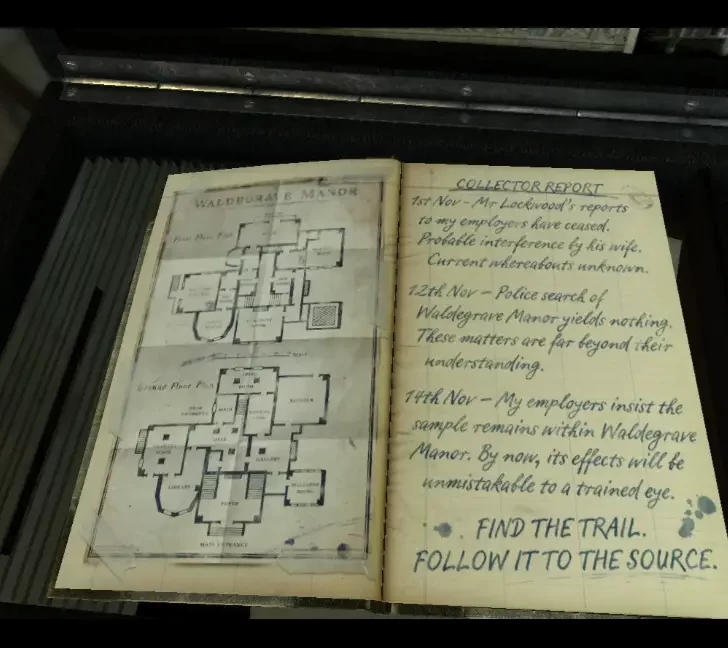 WALDEGRAVE MANOR
First Floor Plan
Ground Floor Plan
KITCHEN
GALLERY
LIBRARY
FOYER
MAIN ENTRANCE
COLLECTOR REPORT
1st Nov – Mr Lockwood's reports
to my employers have ceased.
Probable interference by his wife.
Current whereabouts unknown.
12th Nov – Police search of
Waldegrave Manor yields nothing.
These matters are far beyond their
understanding.
14th Nov – My employers insist the
sample remains within Waldegrave
Manor. By now, its effects will be
unmistakable to a trained eye.
FIND THE TRAIL.
FOLLOW IT TO THE SOURCE.